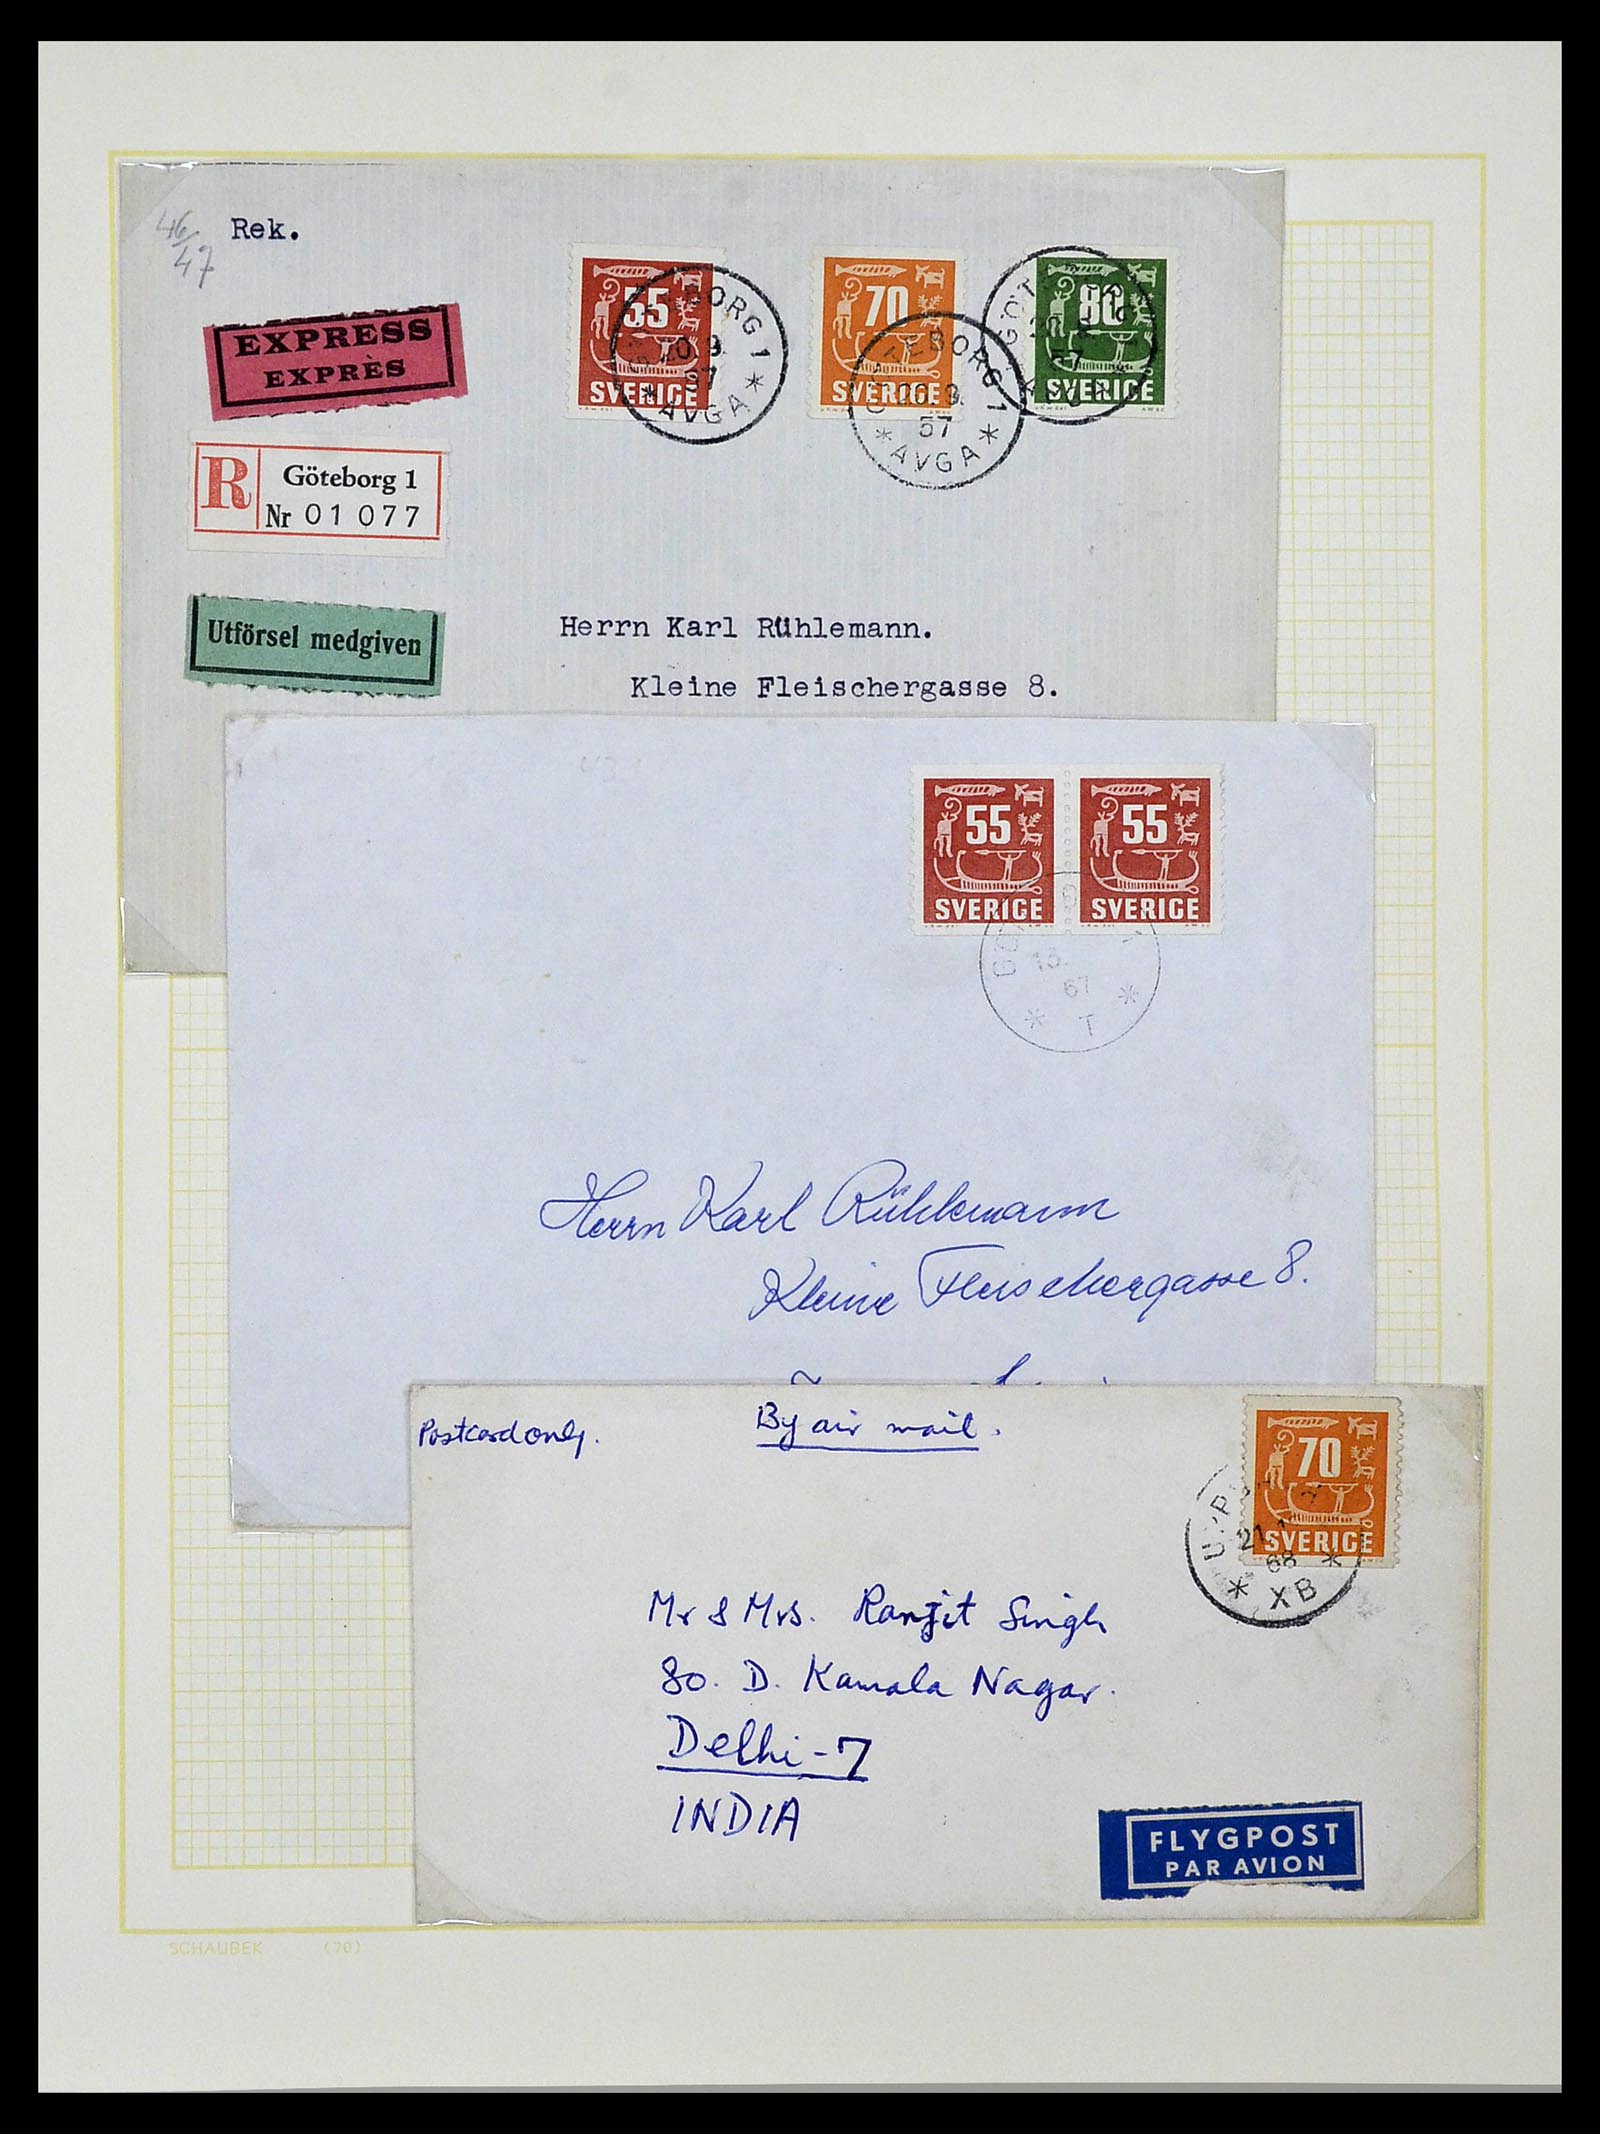 46/47
Rek.
EXPRESS
EXPRÈS
R
Göteborg 1
Nr 01077
Utförsel medgiven
55
SVERIGE
70
SVERIGE
80
SVERIGE
GÖTEBORG 1
20.9.
57
* AVGA *
GÖTEBORG 1
20.9.
57
* AVGA *
57
Herrn Karl Rühlemann.
Kleine Fleischergasse 8.
55
SVERIGE
55
SVERIGE
67
* T *
Herrn Karl Rühlemann
Kleine Fleischergasse 8.
Postcard only.
By air mail.
70
SVERIGE
68
* XB *
Mr & Mrs. Ranjit Singh
80. D. Kamala Nagar.
Delhi-7
INDIA
FLYGPOST
PAR AVION
SCHAUBEK (70)